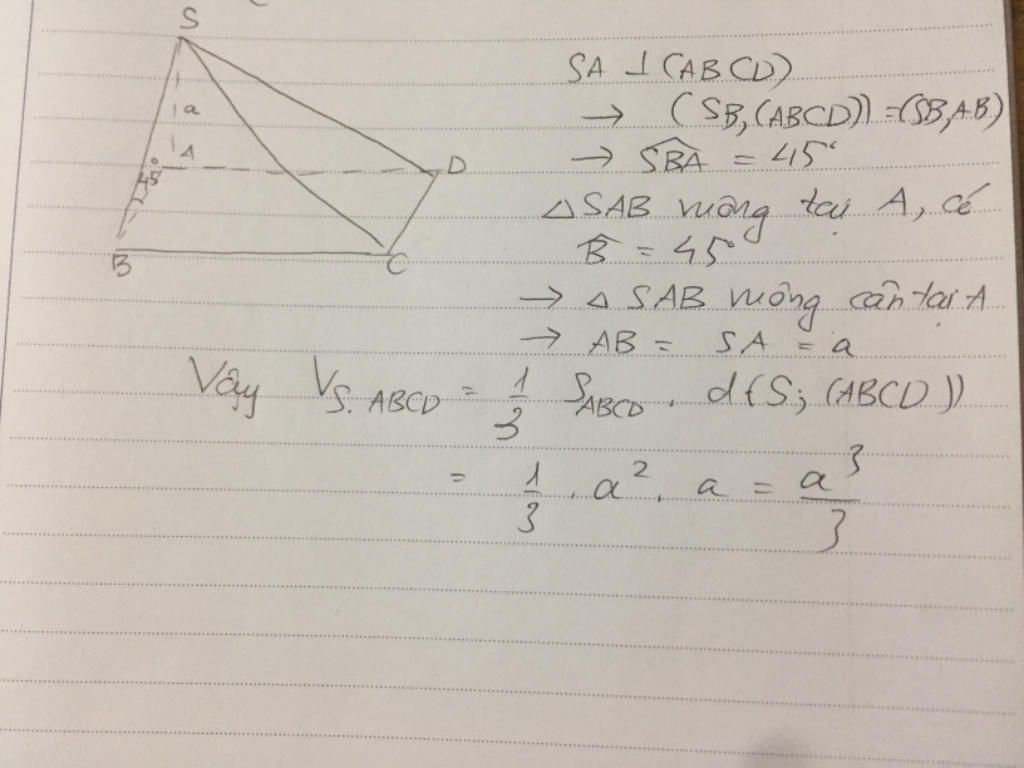 S
a
A
45°
D
B
C
SA ⊥ (ABCD)
→ (SB, (ABCD)) = (SB, AB)
→ \widehat{SBA} = 45°
△ SAB vuông tại A, có
\widehat{B} = 45°
→ △ SAB vuông cân tại A
→ AB = SA = a
Vậy V_{S.ABCD} = \frac{1}{3} S_{ABCD} . d(S; (ABCD))
= \frac{1}{3} . a² . a = \frac{a³}{3}